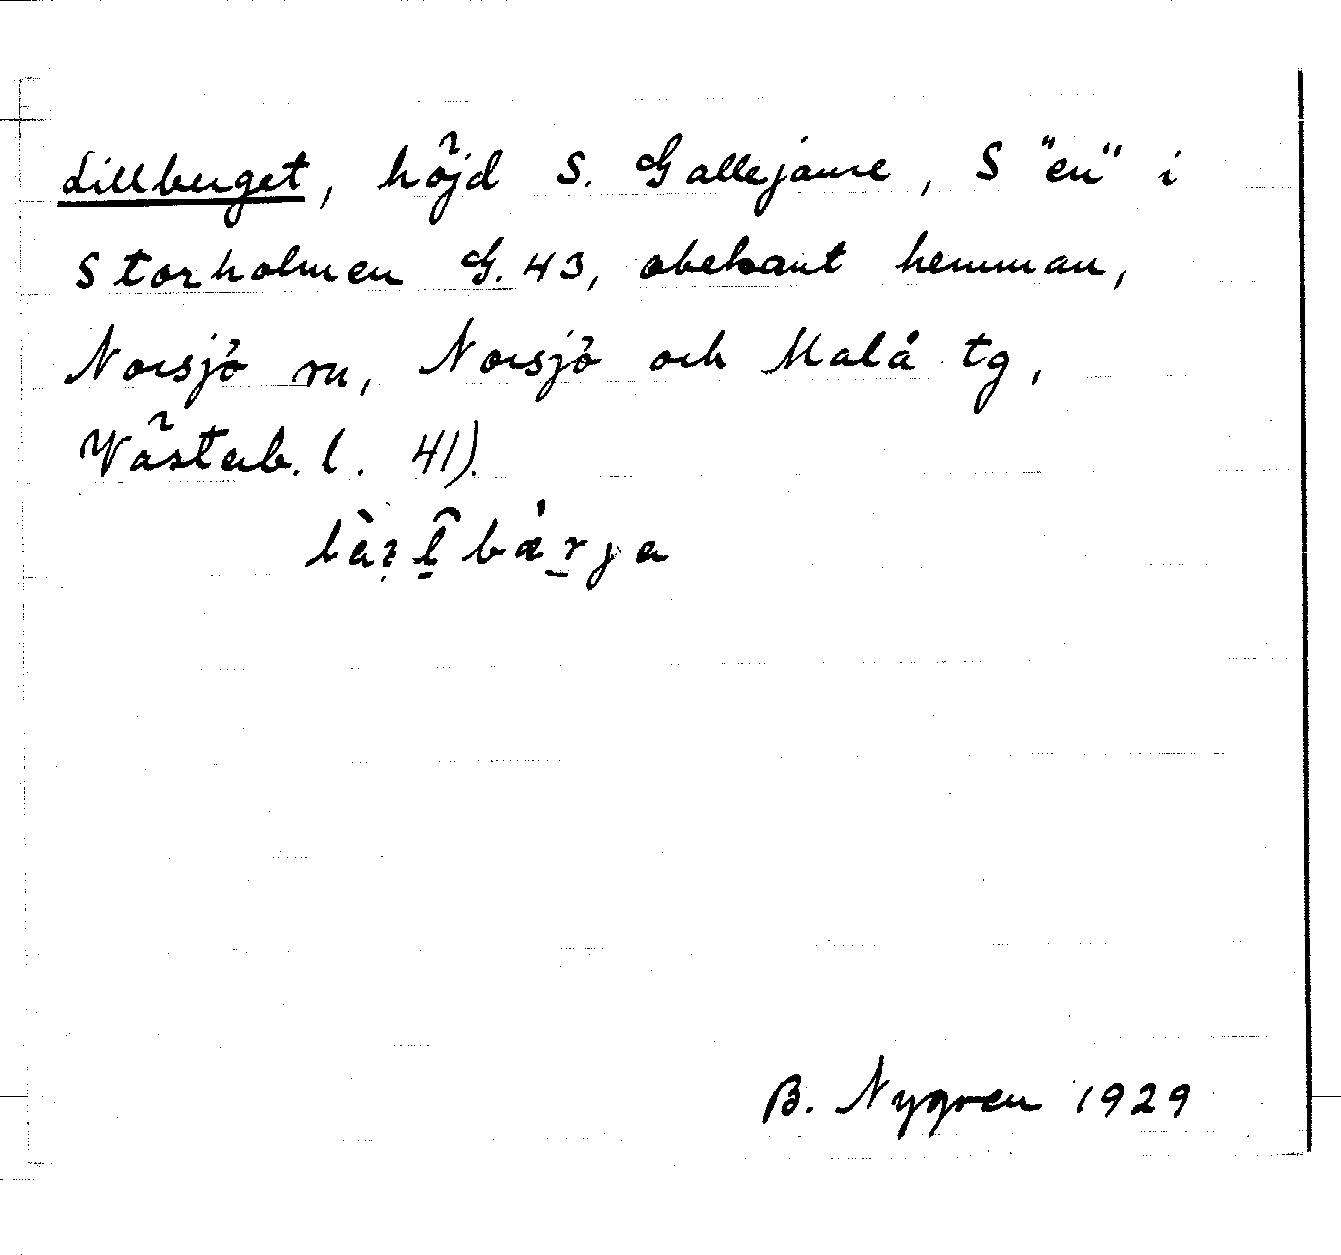 Lillberget, höjd S. Gallejaure, S "en" i
Storholmen G. 43, obekant hemman,
Norsjö sn, Norsjö och Malå tg,
Västerb. l. 41).
B. Nygren 1929